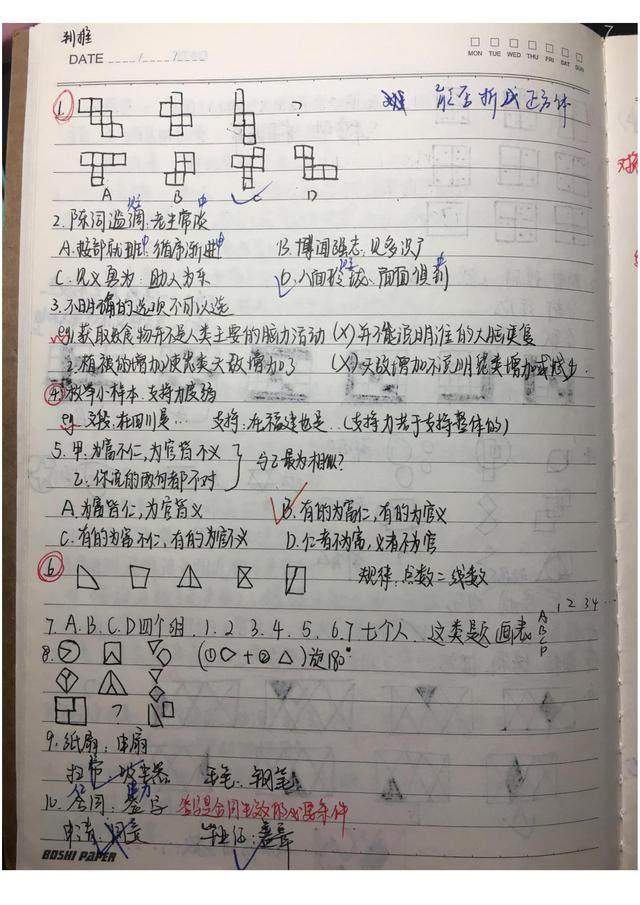 判推
DATE
MON TUE WED THU FRI SAT SUN
1. ? 能否折成正方体
A B C D
2. 陈词滥调:老生常谈
A.按部就班:循序渐进 B.博闻强志:见多识广
C.见义勇为:助人为乐 D.八面玲珑:面面俱到
3.不明确的选项不可以选
例1.获取食物并不是人类主要的脑力活动 (X)并不能说明谁的大脑更复
2.植被的增加使 类天敌增加了 (X)天敌增加不说明 类增加或减少.
④ 小样本:支持力度弱
例 文段:在四川是… 支持:在福建也是…(支持力弱于支持整体的)
5.甲:为富不仁,为官皆不义
乙:你说的两句都不对 与乙最为相似?
A.为富皆仁,为官皆义 B.有的为富仁,有的为官义
C.有的为富不仁,有的为官不义 D.仁者不为富,义者不为官
6 规律:点数=线数
7.A.B.C.D四个组.1.2.3.4.5.6.7七个人.这类题画表
1 2 3 4 …
A
B
C
D
8. (① + ② )旋180°
?
9.纸扇:电扇
扫帚:吸尘器 毛笔:钢笔
10.合同:签字 签字是合同生效的必要条件
申请: 盖 毕业证:
BOSHI PAPER